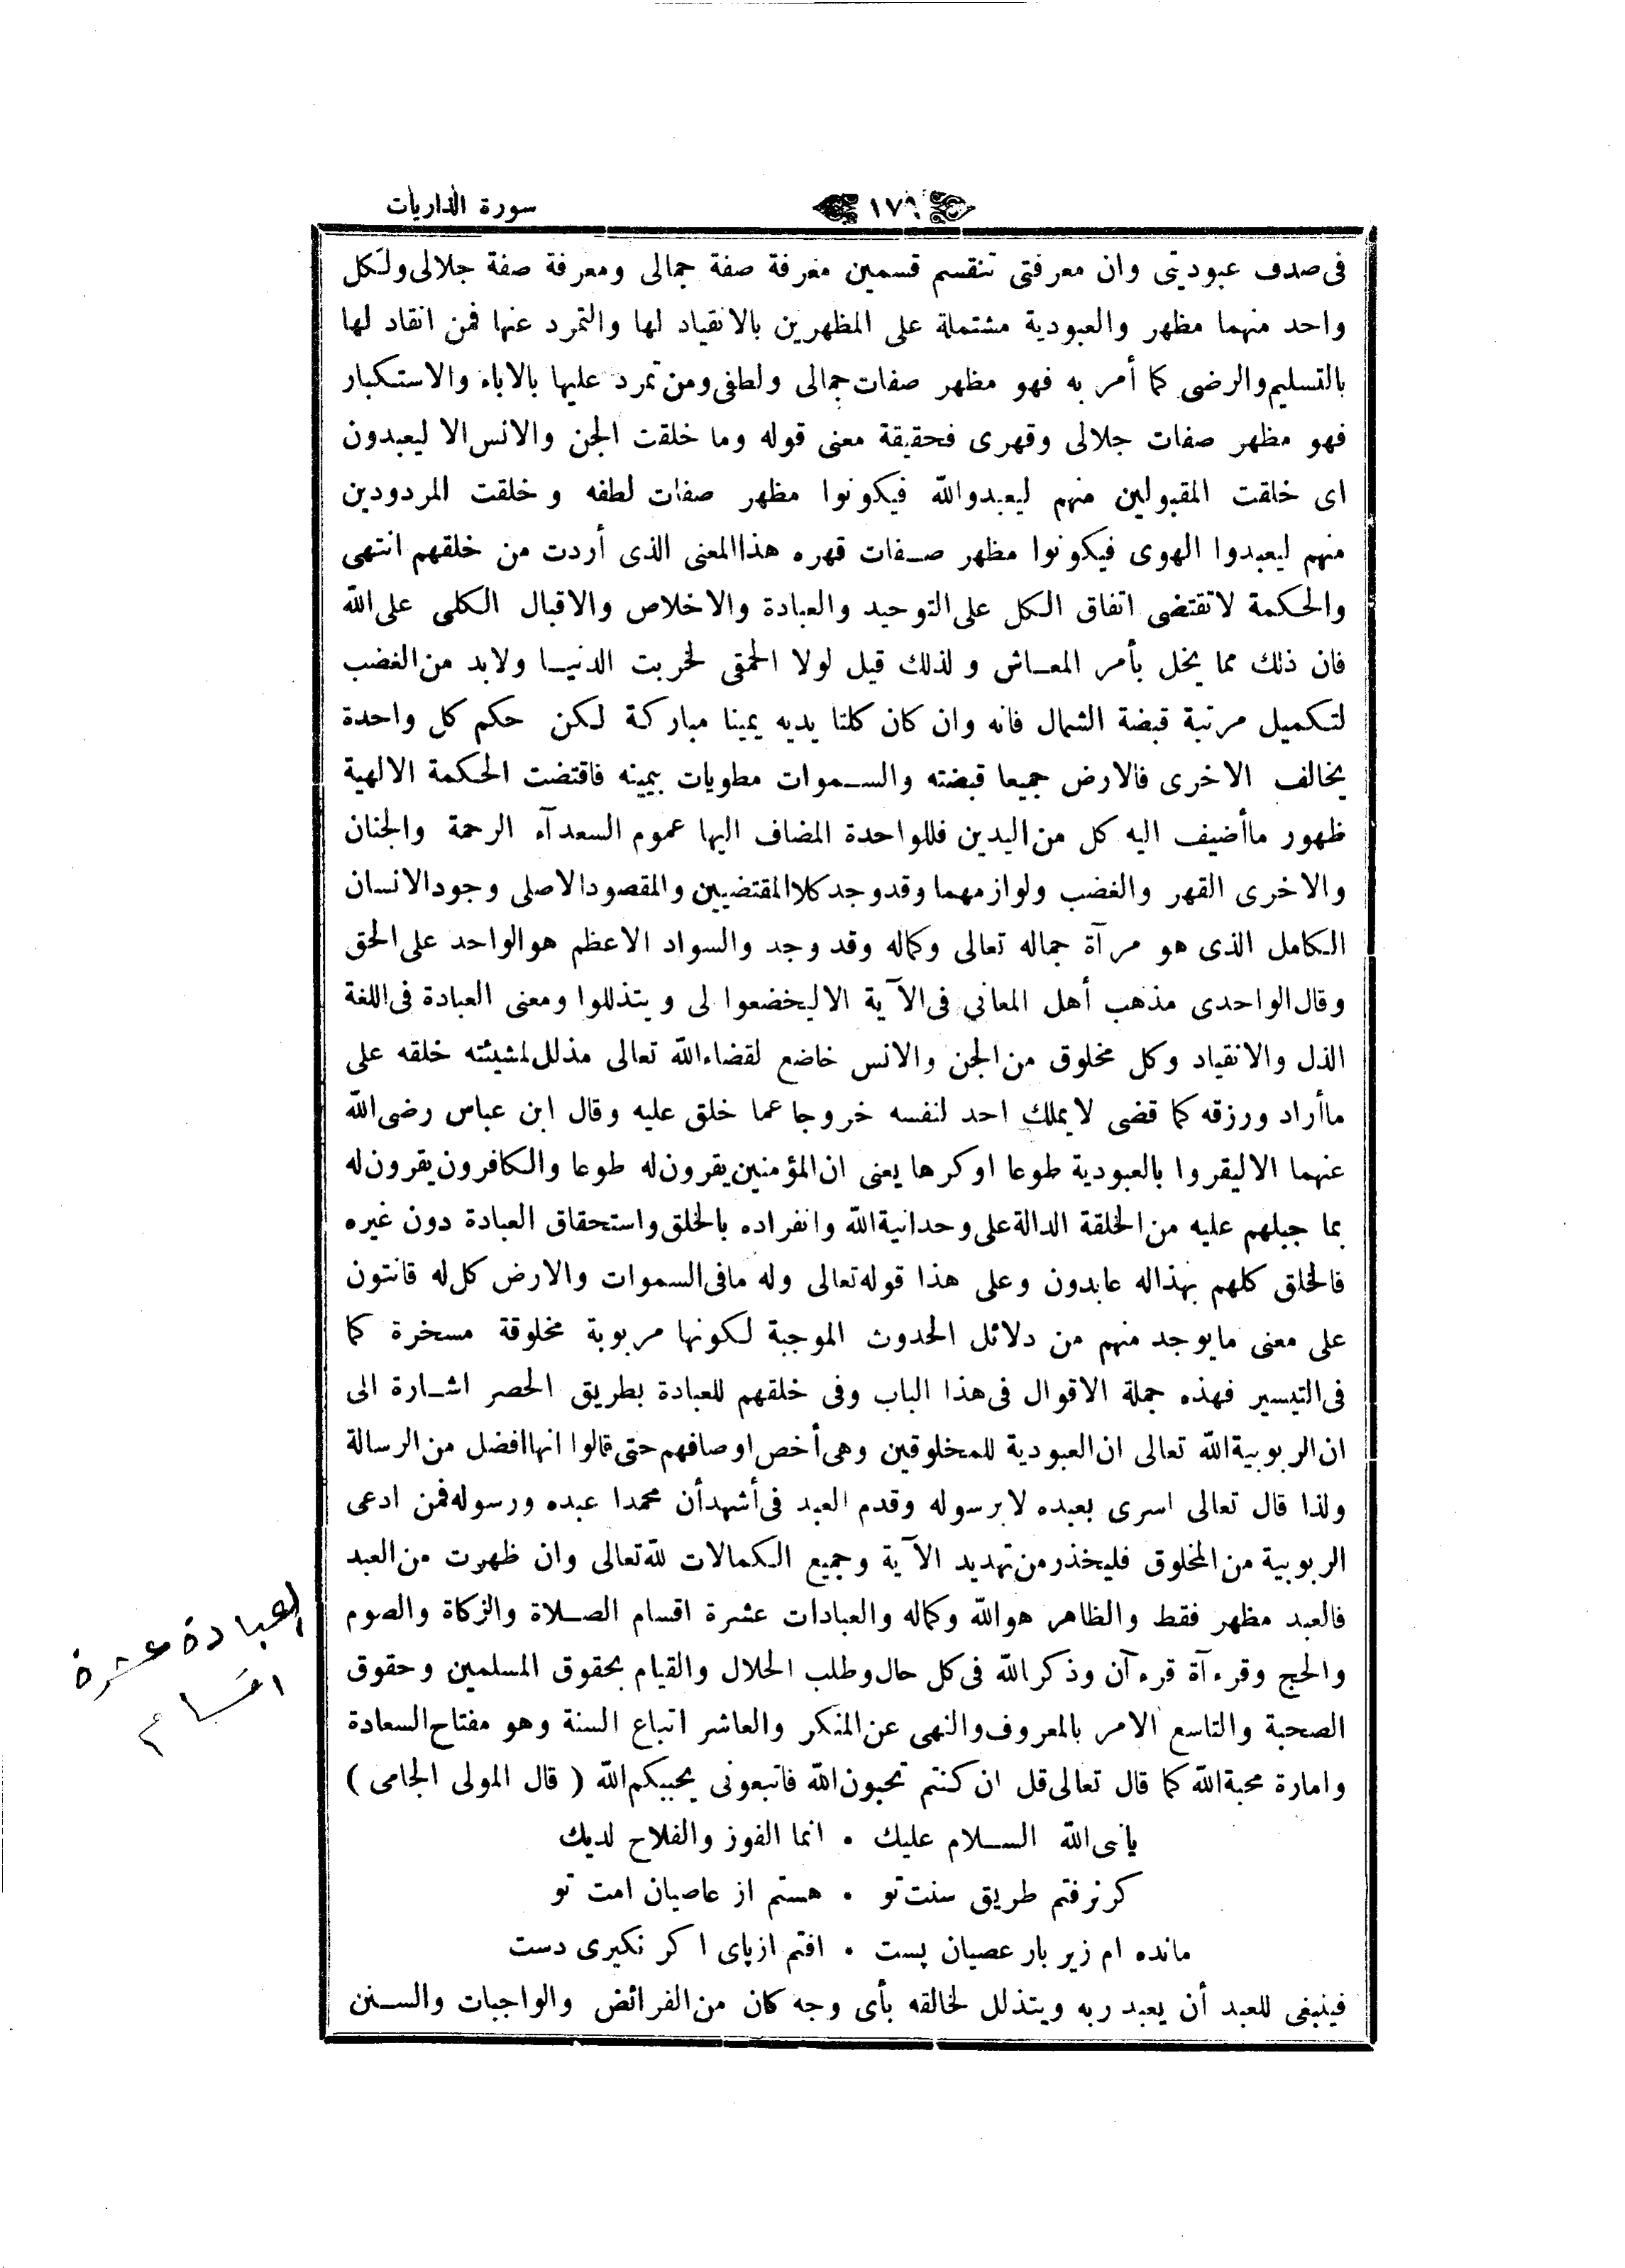 سورة الذاريات
١٧٩
فى صدف عبوديتى وان معرفتى تنقسم قسمين معرفة صفة جمالى ومعرفة صفة جلالى ولكل
واحد منهما مظهر والعبودية مشتملة على المظهرين بالانقياد لها والتمرد عنها فمن انقاد لها
بالتسليم والرضى كما أمر به فهو مظهر صفات جمالى ولطفى ومن تمرد عليها بالاباء والاستكبار
فهو مظهر صفات جلالى وقهرى فحقيقة معنى قوله وما خلقت الجن والانس الا ليعبدون
اى خلقت المقبولين منهم ليعبدوالله فيكونوا مظهر صفات لطفه وخلقت المردودين
منهم ليعبدوا الهوى فيكونوا مظهر صفات قهره هذا المعنى الذى أردت من خلقهم انتهى
والحكمة لاتقتضى اتفاق الكل على التوحيد والعبادة والاخلاص والاقبال الكلى على الله
فان ذلك مما يخل بأمر المعاش ولذلك قيل لولا الحمقى لخربت الدنيا ولابد من الغضب
لتكميل مرتبة قبضة الشمال فانه وان كان كلتا يديه يمينا مباركة لكن حكم كل واحدة
يخالف الاخرى فالارض جميعا قبضته والسموات مطويات بيمينه فاقتضت الحكمة الالهية
ظهور ماأضيف اليه كل من اليدين فللواحدة المضاف اليها عموم السعدآء الرحمة والجنان
والاخرى القهر والغضب ولوازمهما وقدوجد كلا المقتضيين والمقصود الاصلى وجود الانسان
الكامل الذى هو مرآة جماله تعالى وكماله وقد وجد والسواد الاعظم هو الواحد على الحق
وقال الواحدى مذهب أهل المعانى فى الآية الا ليخضعوا لى ويتذللوا ومعنى العبادة فى اللغة
الذل والانقياد وكل مخلوق من الجن والانس خاضع لقضاء الله تعالى مذلل لمشيئته خلقه على
ماأراد ورزقه كما قضى لايملك احد لنفسه خروجا عما خلق عليه وقال ابن عباس رضى الله
عنهما الا ليقروا بالعبودية طوعا اوكرها يعنى ان المؤمنين يقرون له طوعا والكافرون يقرون له
بما جبلهم عليه من الخلقة الدالة على وحدانية الله وانفراده بالخلق واستحقاق العبادة دون غيره
فالخلق كلهم بهذاله عابدون وعلى هذا قوله تعالى وله مافى السموات والارض كل له قانتون
على معنى مايوجد منهم من دلائل الحدوث الموجبة لكونها مربوبة مخلوقة مسخرة كما
فى التيسير فهذه جملة الاقوال فى هذا الباب وفى خلقهم للعبادة بطريق الحصر اشارة الى
ان الربوبية الله تعالى ان العبودية للمخلوقين وهى أخص اوصافهم حتى قالوا انها افضل من الرسالة
ولذا قال تعالى اسرى بعبده لا برسوله وقدم العبد فى أشهد أن محمدا عبده ورسوله فمن ادعى
الربوبية من المخلوق فليحذر من تهديد الآية وجميع الكمالات لله تعالى وان ظهرت من العبد
فالعبد مظهر فقط والظاهر هو الله وكماله والعبادات عشرة اقسام الصلاة والزكاة والصوم
والحج وقرءآة قرءآن وذكر الله فى كل حال وطلب الحلال والقيام بحقوق المسلمين وحقوق
الصحبة والتاسع الامر بالمعروف والنهى عن المنكر والعاشر اتباع السنة وهو مفتاح السعادة
وامارة محبة الله كما قال تعالى قل ان كنتم تحبون الله فاتبعونى يحببكم الله ( قال المولى الجامى )
يانبى الله السلام عليك • انما الفوز والفلاح لديك
كر نرفتم طريق سنت تو • هستم از عاصيان امت تو
مانده ام زير بار عصيان پست • افتم ازپاى اكر نكيرى دست
فينبغى للعبد أن يعبد ربه ويتذلل لخالقه بأى وجه كان من الفرائض والواجبات والسنن
العبادة عشرة
اقسام